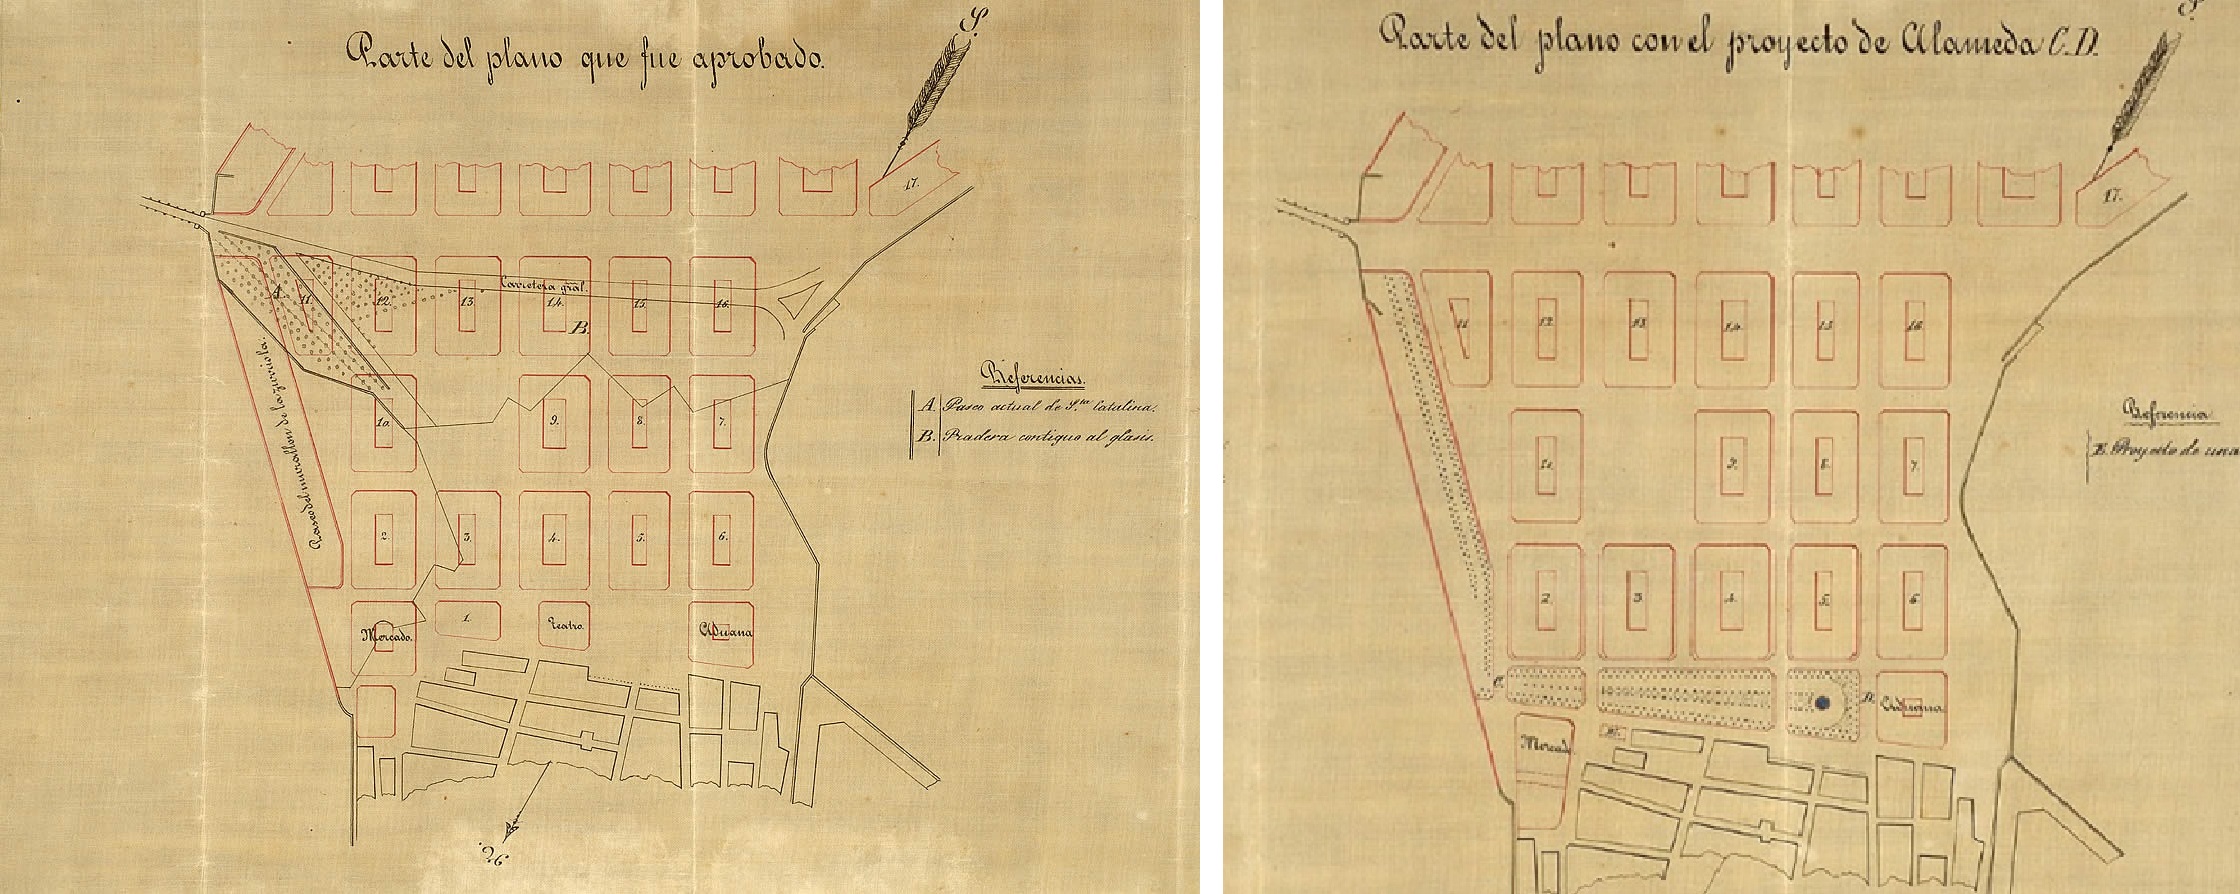 Parte del plano que fue aprobado.
S.
17.
A.
11.
12.
13
Carretera gral.
14.
B.
15.
16.
Paseo del murallon de la zurriola.
10.
9.
8.
7.
Referencias.
A. Paseo actual de Sta. Catalina.
B. Pradera contiguo al glasis.
2.
3.
4.
5.
6.
Mercado.
1.
Teatro.
Aduana
Parte del plano con el proyecto de Alameda C.D.
S.
17.
11
12.
13.
14.
15
16.
10.
9.
8.
7.
Referencia
E. Proyecto de una
2.
3.
4.
5.
6.
C.
D.
Aduana
Mercado